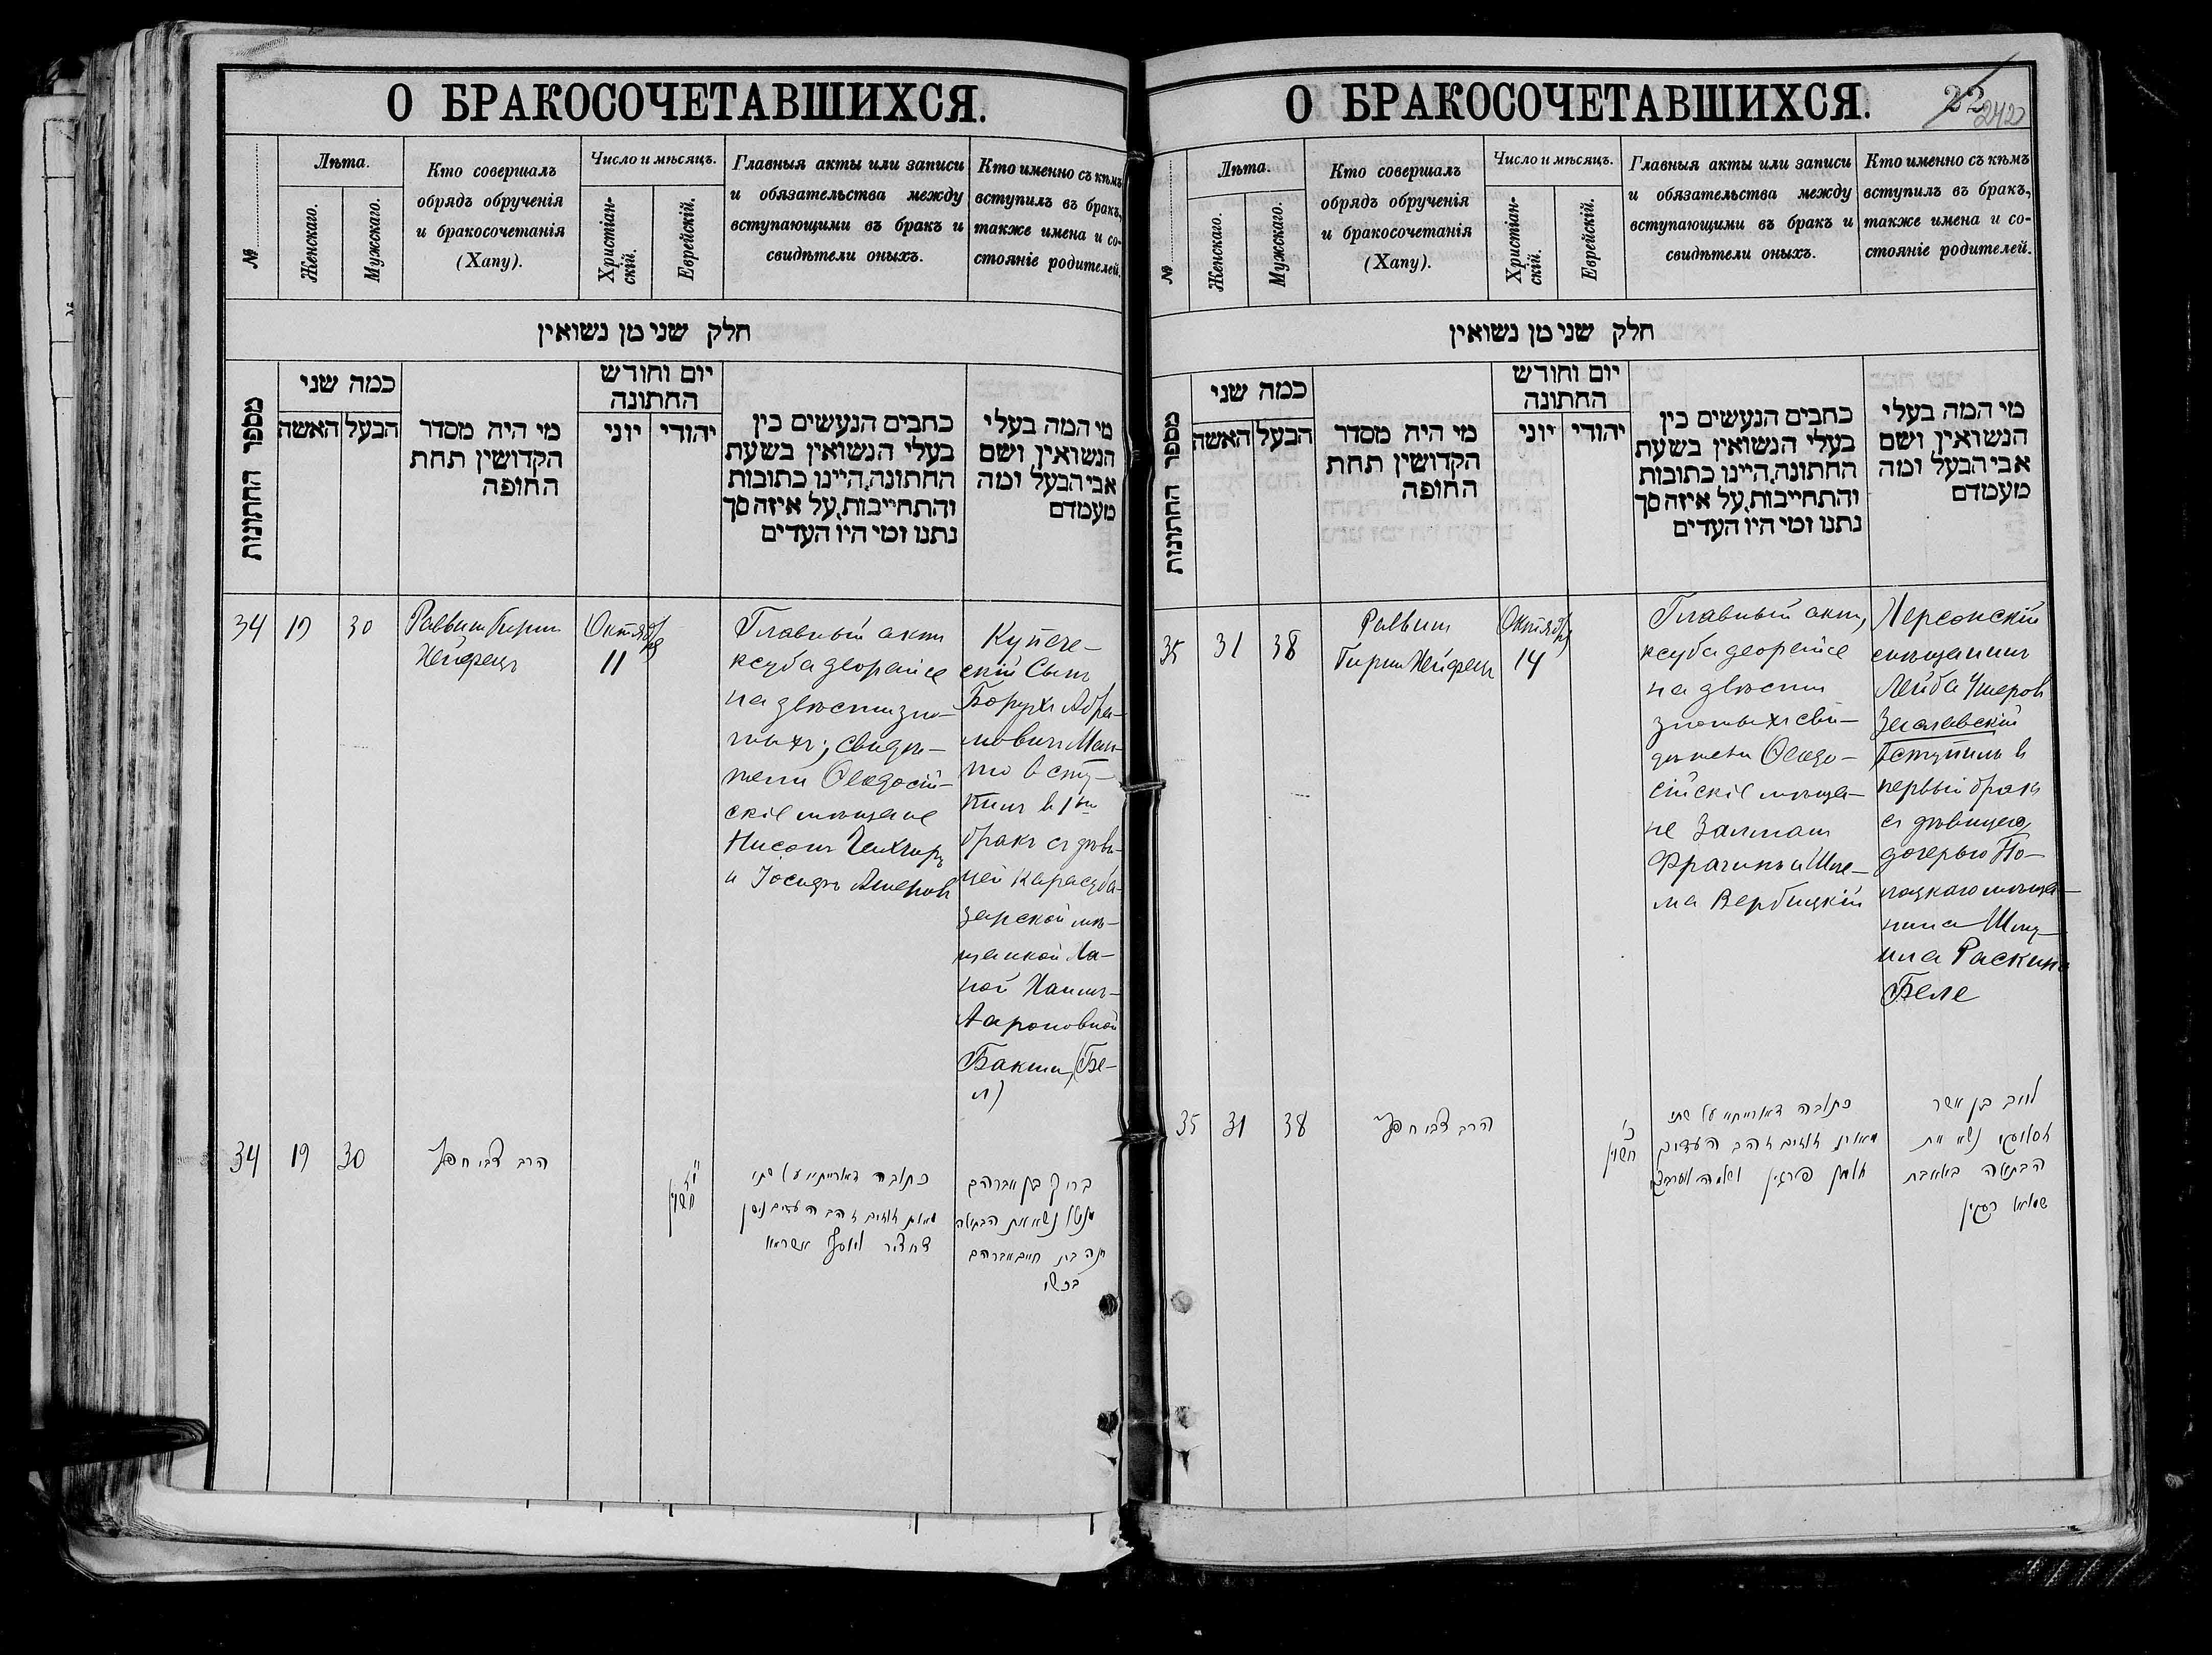 О БРАКОСОЧЕТАВШИХСЯ.
№
Лѣта.
Женскаго.
Мужскаго.
Кто совершалъ
обрядъ обрученія
и бракосочетанія
(Хапу).
Число и мѣсяцъ.
Христіан-
скій.
Еврейскій.
Главныя акты или записи
и обязательства между
вступающими въ бракъ и
свидѣтели оныхъ.
Кто именно съ кѣмъ
вступилъ въ бракъ,
также имена и со-
стояніе родителей.
חלק שני מן נשואין
מספר החתונות
כמה שני
הבעל
האשה
מי היה מסדר
הקדושין תחת
החופה
יום וחודש
החתונה
יהודי
יוני
כתבים הנעשים בין
בעלי הנשואין בשעת
החתונה,היינו כתובות
והתחייבות,על איזה סך
נתנו ומי היו העדים
מי המה בעלי
הנשואין ושם
אבי הבעל ומה
מעמדם
34
19
30
Раввин Гирш
Хейфецъ
Октября
11
Главный акт
ксуба деорайсе
на двѣсти зло-
тыхъ; свидѣ-
тели Ѳеодосій-
скіе мѣщане
Нисонъ
и Іосифъ Ашеров
Купече-
скій Сынъ
Борухъ Абра-
мовичъ
вступилъ в 1й
бракъ съ дѣви-
цей Карасуба-
зарской мѣ-
щанкой Ха-
ной Хаимъ-
Аароновной
Бакши
34
19
30
הרב צבי חפץ
חשון
כתובה דאורייתא על שתי
מאות זוזים זהב העדים ניסן
ברוך בן אברהם
נשא את הבתולה
חנה בת חיים אברהם
בכשי
О БРАКОСОЧЕТАВШИХСЯ.
22
242
№
Лѣта.
Женскаго.
Мужскаго.
Кто совершалъ
обрядъ обрученія
и бракосочетанія
(Хапу).
Число и мѣсяцъ.
Христіан-
скій.
Еврейскій.
Главныя акты или записи
и обязательства между
вступающими въ бракъ и
свидѣтели оныхъ.
Кто именно съ кѣмъ
вступилъ въ бракъ,
также имена и со-
стояніе родителей.
חלק שני מן נשואין
מספר החתונות
כמה שני
הבעל
האשה
מי היה מסדר
הקדושין תחת
החופה
יום וחודש
החתונה
יהודי
יוני
כתבים הנעשים בין
בעלי הנשואין בשעת
החתונה,היינו כתובות
והתחייבות,על איזה סך
נתנו ומי היו העדים
מי המה בעלי
הנשואין ושם
אבי הבעל ומה
מעמדם
35
31
38
Раввин
Гирш Хейфецъ
Октября
14
Главный акт,
ксуба деорайсе
на двѣсти
злотыхъ сви-
дѣтели Ѳеодо-
сійскіе мѣща-
не Залман
Фрагинъ и Шле-
ма Вербицкій
Херсонскій
мѣщанинъ
Лейба Ушеров
Заславскій
вступилъ в
первый бракъ
съ дѣвицею
дочерью По-
лоцкаго мѣща-
нина Шму-
ила Раскина
Беле
35
31
38
הרב צבי חפץ
כ'
חשון
כתובה דאורייתא על שתי
מאות זוזים זהב העדים
זלמן פראגין
לייב בן אשר
זסלווסקי נשא את
הבתולה
שמואל רסקין